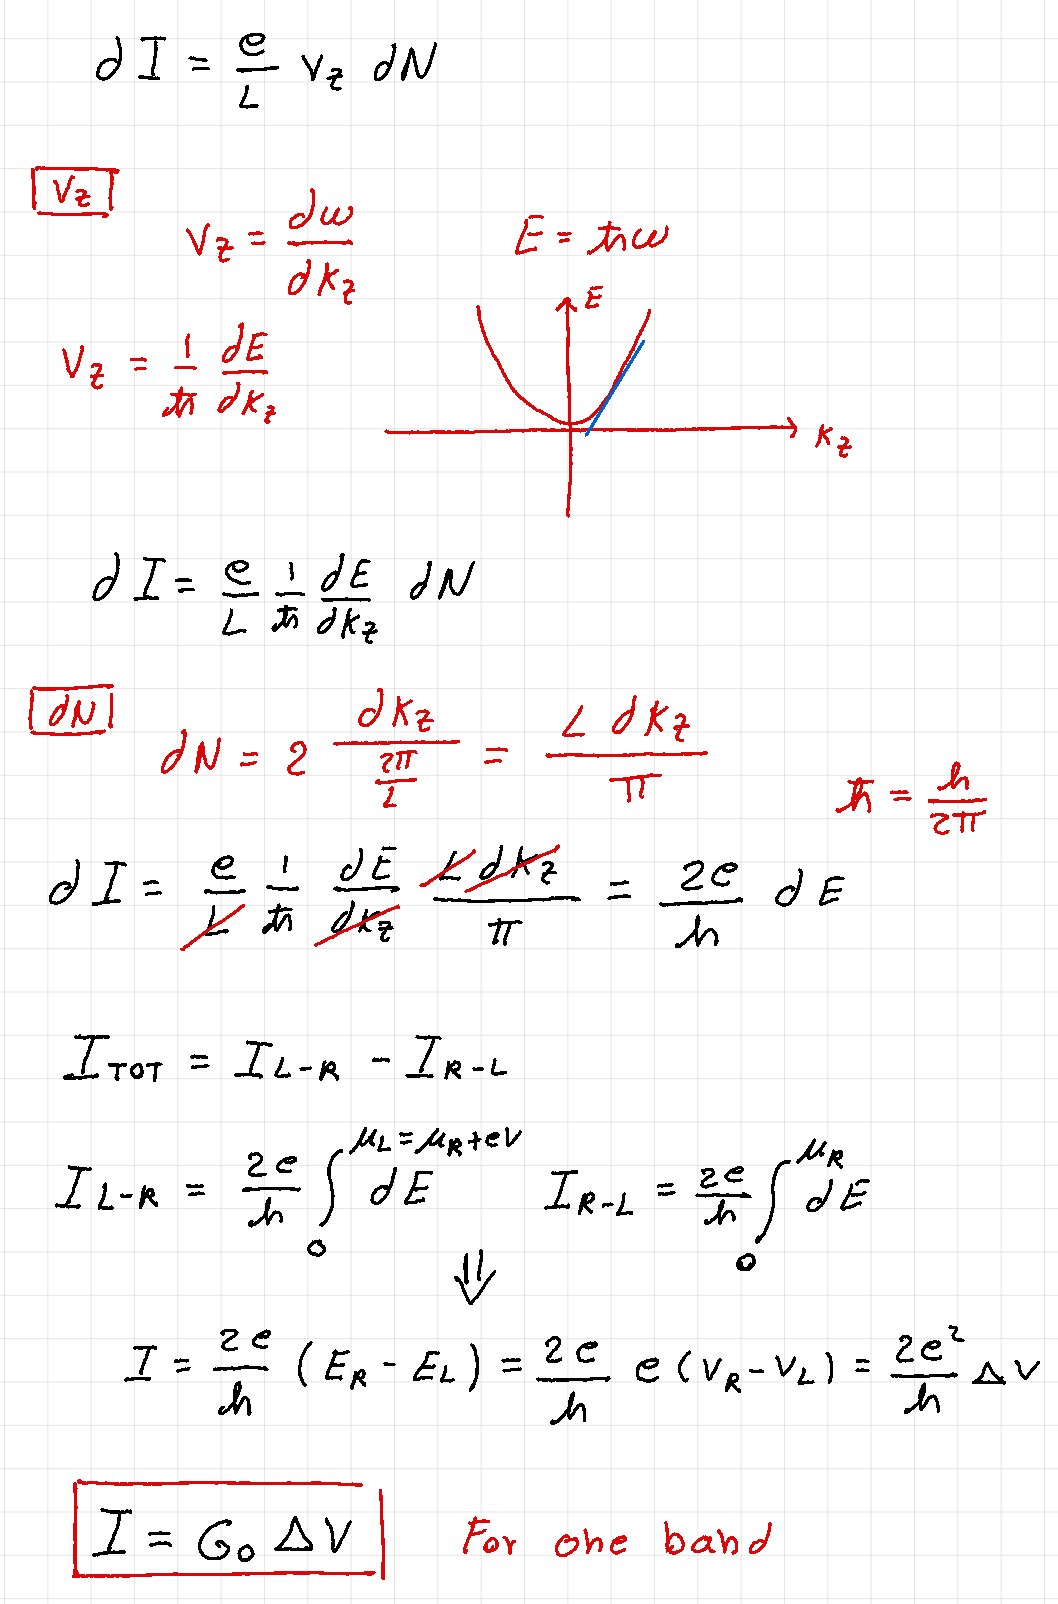 dI = e/L v_z dN
v_z
v_z = dω/dk_z    E = ħω
v_z = 1/ħ dE/dk_z
E
k_z
dI = e/L 1/ħ dE/dk_z dN
dN
dN = 2 dk_z/(2π/L) = L dk_z/π
ħ = h/2π
dI = e/L 1/ħ dE/dk_z L dk_z/π = 2e/h dE
I_TOT = I_L-R - I_R-L
I_L-R = 2e/h ∫_0^{μ_L = μ_R + eV} dE    I_R-L = 2e/h ∫_0^{μ_R} dE
⇓
I = 2e/h (E_R - E_L) = 2e/h e(V_R - V_L) = 2e²/h ΔV
I = G_0 ΔV    For one band